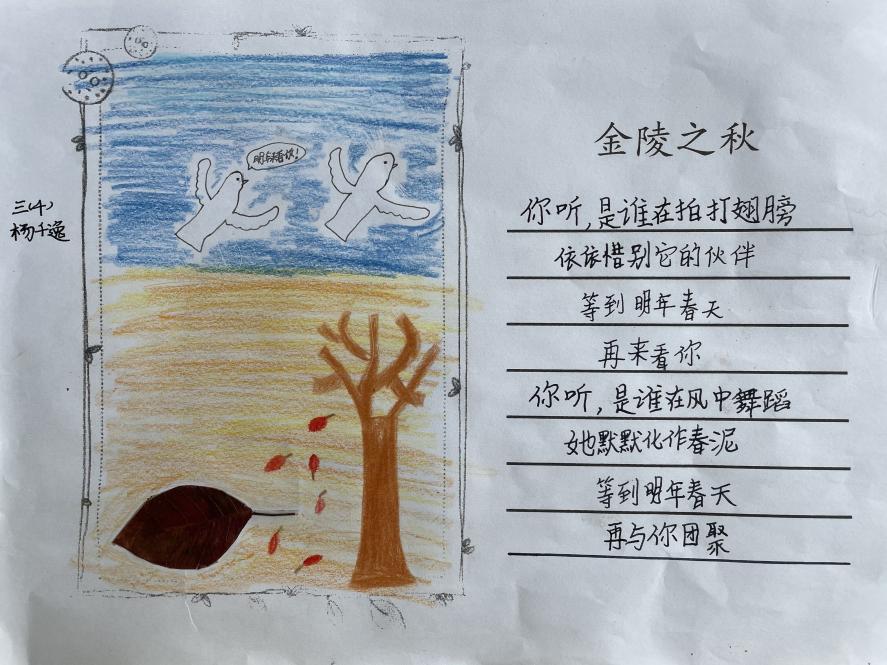 三(4)
杨千逸
明年春天来看你!
金陵之秋
你听,是谁在拍打翅膀
依依惜别它的伙伴
等到明年春天
再来看你
你听,是谁在风中舞蹈
她默默化作春泥
等到明年春天
再与你团聚